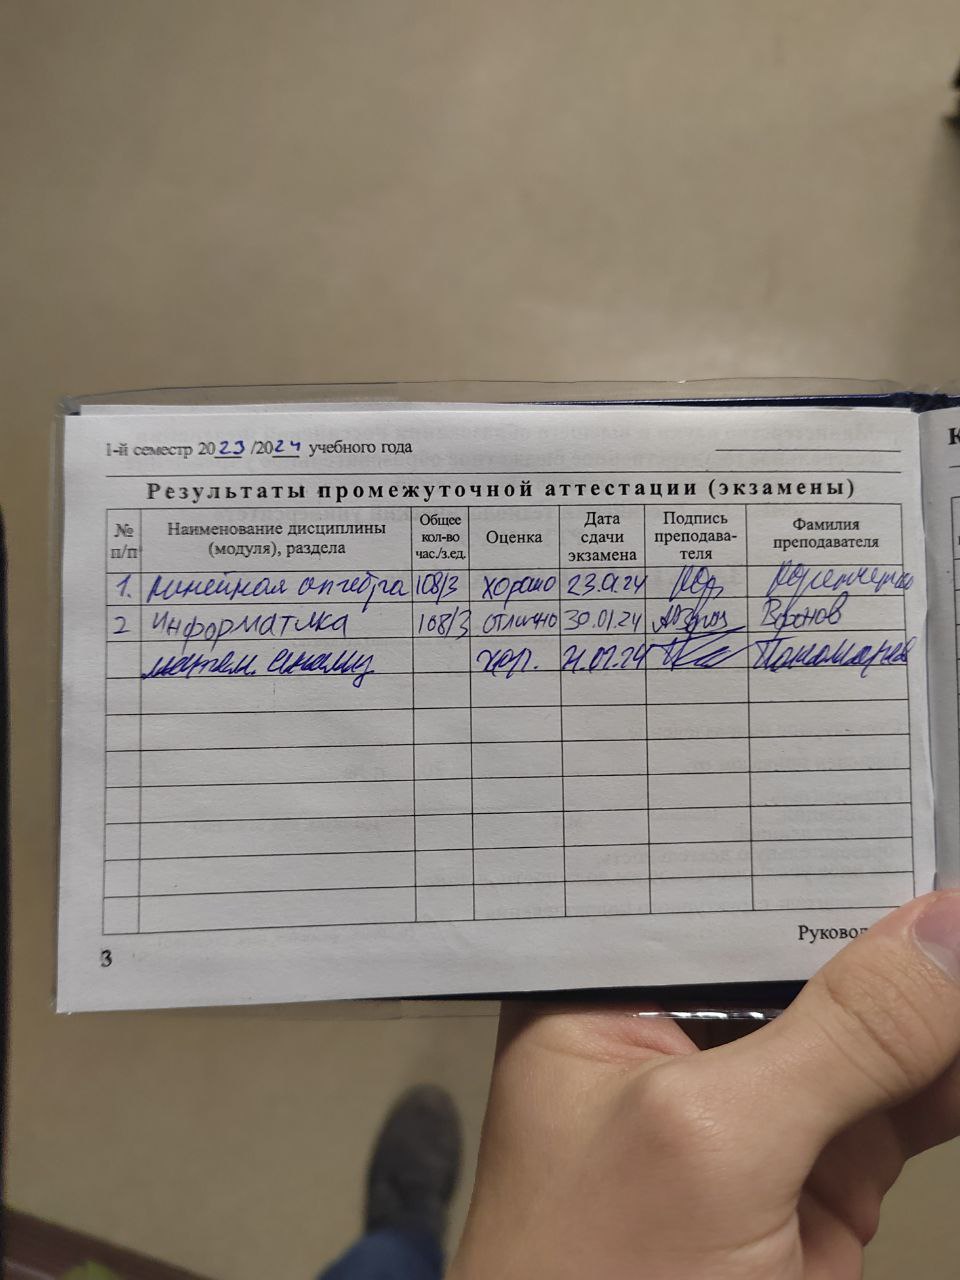 1-й семестр 2023/2024 учебного года
Результаты промежуточной аттестации (экзамены)
№ п/п Наименование дисциплины (модуля), раздела Общее кол-во час./з.ед. Оценка Дата сдачи экзамена Подпись преподава-теля Фамилия преподавателя
1. Линейная алгебра 108/3 хорошо 23.01.24
2 Информатика 108/3 отлично 30.01.24 Вронов
матем. анализ хор. Пономарев
3
Руковод
К